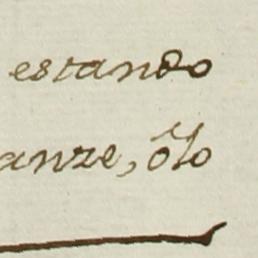 estando
anze, õ lo